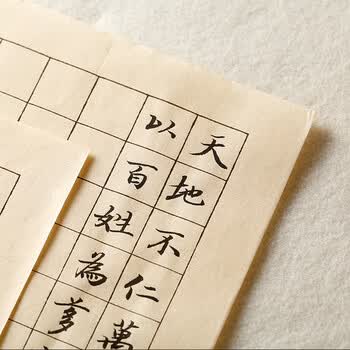 天地不仁萬
以百姓為